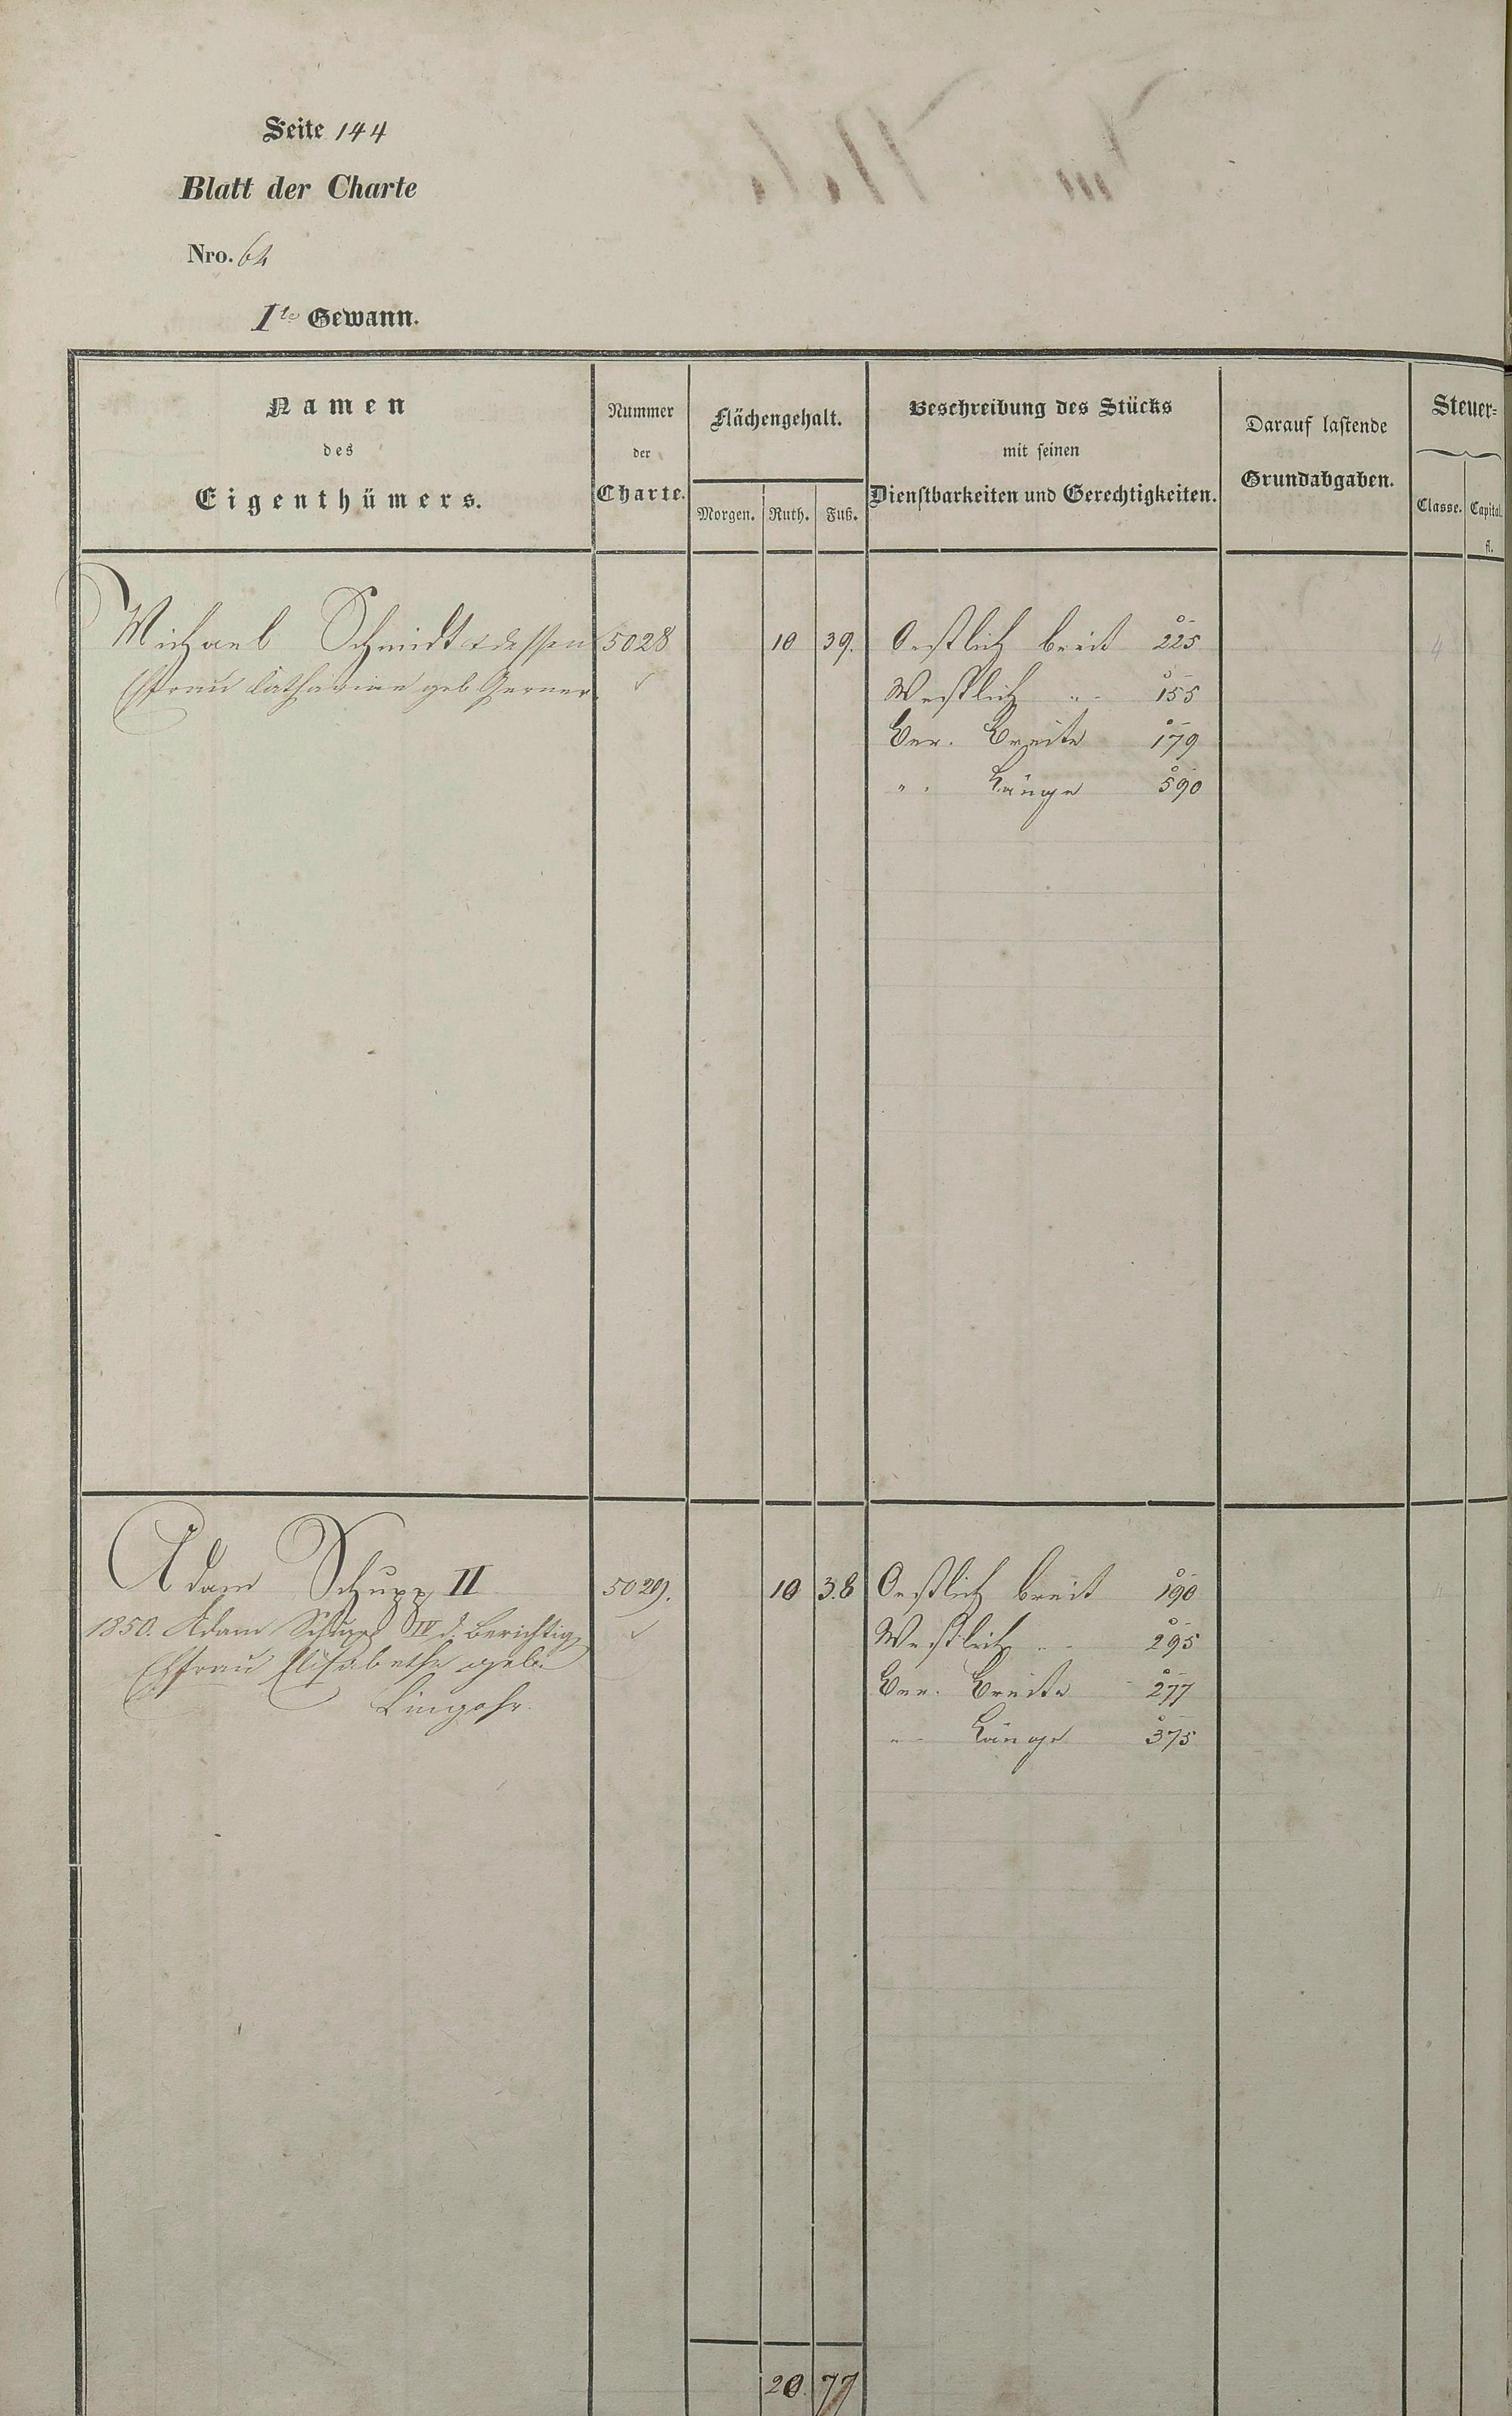 Seite 144
Blatt der Charte
Nro. 64
Ite Gewann.
Namen
des
Eigenthümers.
Nummer
der
Charte.
Flächengehalt.
Morgen. Ruth. Fuß.
Beschreibung des Stücks
mit seinen
Dienstbarkeiten und Gerechtigkeiten.
Darauf lastende
Grundabgaben.
Steuer=
Classe. Capital.
fl.
Michael Schmidt & dessen 5028 10 39. Oestlich breit 225 4
Ehfrau Catharine geb Gerner. Westlich " 155
Ver. Breite 179
" Länge 590
Adam Schupp II 5029. 10 38 Oestlich breit 190
1850. Adam Schupp IV d. Berichtig Westlich " 295
Ehfrau Elisabethe geb. Ver. Breite 277
Lingohr. " Länge 375
20. 77